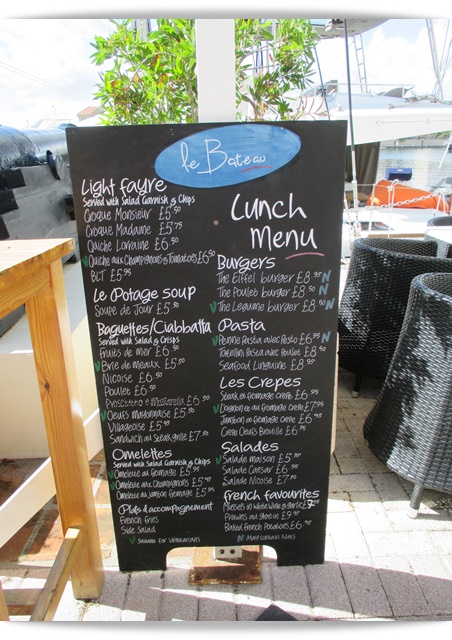 Le Bateau
Lunch
Menu
Light fayre
Served with Salad Garnish & Chips
Croque Monsieur £5.50
Croque Madame £5.75
Quiche Lorraine £6.50
V Quiche aux Champignons & Tomatoes £6.50
BLT £5.95
Le Potage soup
Soupe de Jour £5.50
Baguettes/Ciabbatta
Served with Salad & Crisps
Fruits de mer £6.50
V Brie de meaux £5.50
Nicoise £6.50
Poulet £6.50
Prosciutto e Mozzarella £6.50
V Oeufs Mayonnaise £5.50
Villageoise £5.50
Sandwich au Steak grille £7.50
Omelettes
Served with Salad Garnish & Chips
V Omelette au fromage £5.95
V Omelette aux Champignons £5.95
Omelette au Jambon fromage £5.95
Plats d'accompagnement
French Fries
Side Salad
V Suitable for Vegetarians
Burgers
The Eiffel burger £8.95 N
The Poulet burger £8.50 N
V The Legume burger £8.50 N
Pasta
V Penne Pasta avec Pesto £6.95 N
Tortellini Pasta avec £8.50
Seafood Linguine £8.95
Les Crepes
Steak et fromage crepe £6.95
V et fromage Crepe £7.95
Jambon et fromage Crepe £6.95
Crepe Oeufs Brouille £6.95
Salades
V Salade maison £5.50
Salade Caesar £6.95
Salade Nicoise £7.50
french favourites
Mussels in white wine & garlic £7.95
Prawns au gratin £9.95
Baked French Potatoes £6.95
N May contain Nuts